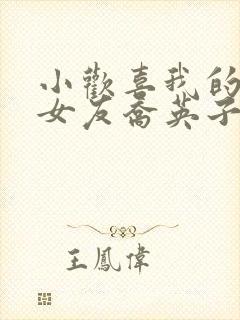 小歡喜我的
女友喬英子
王鳳偉